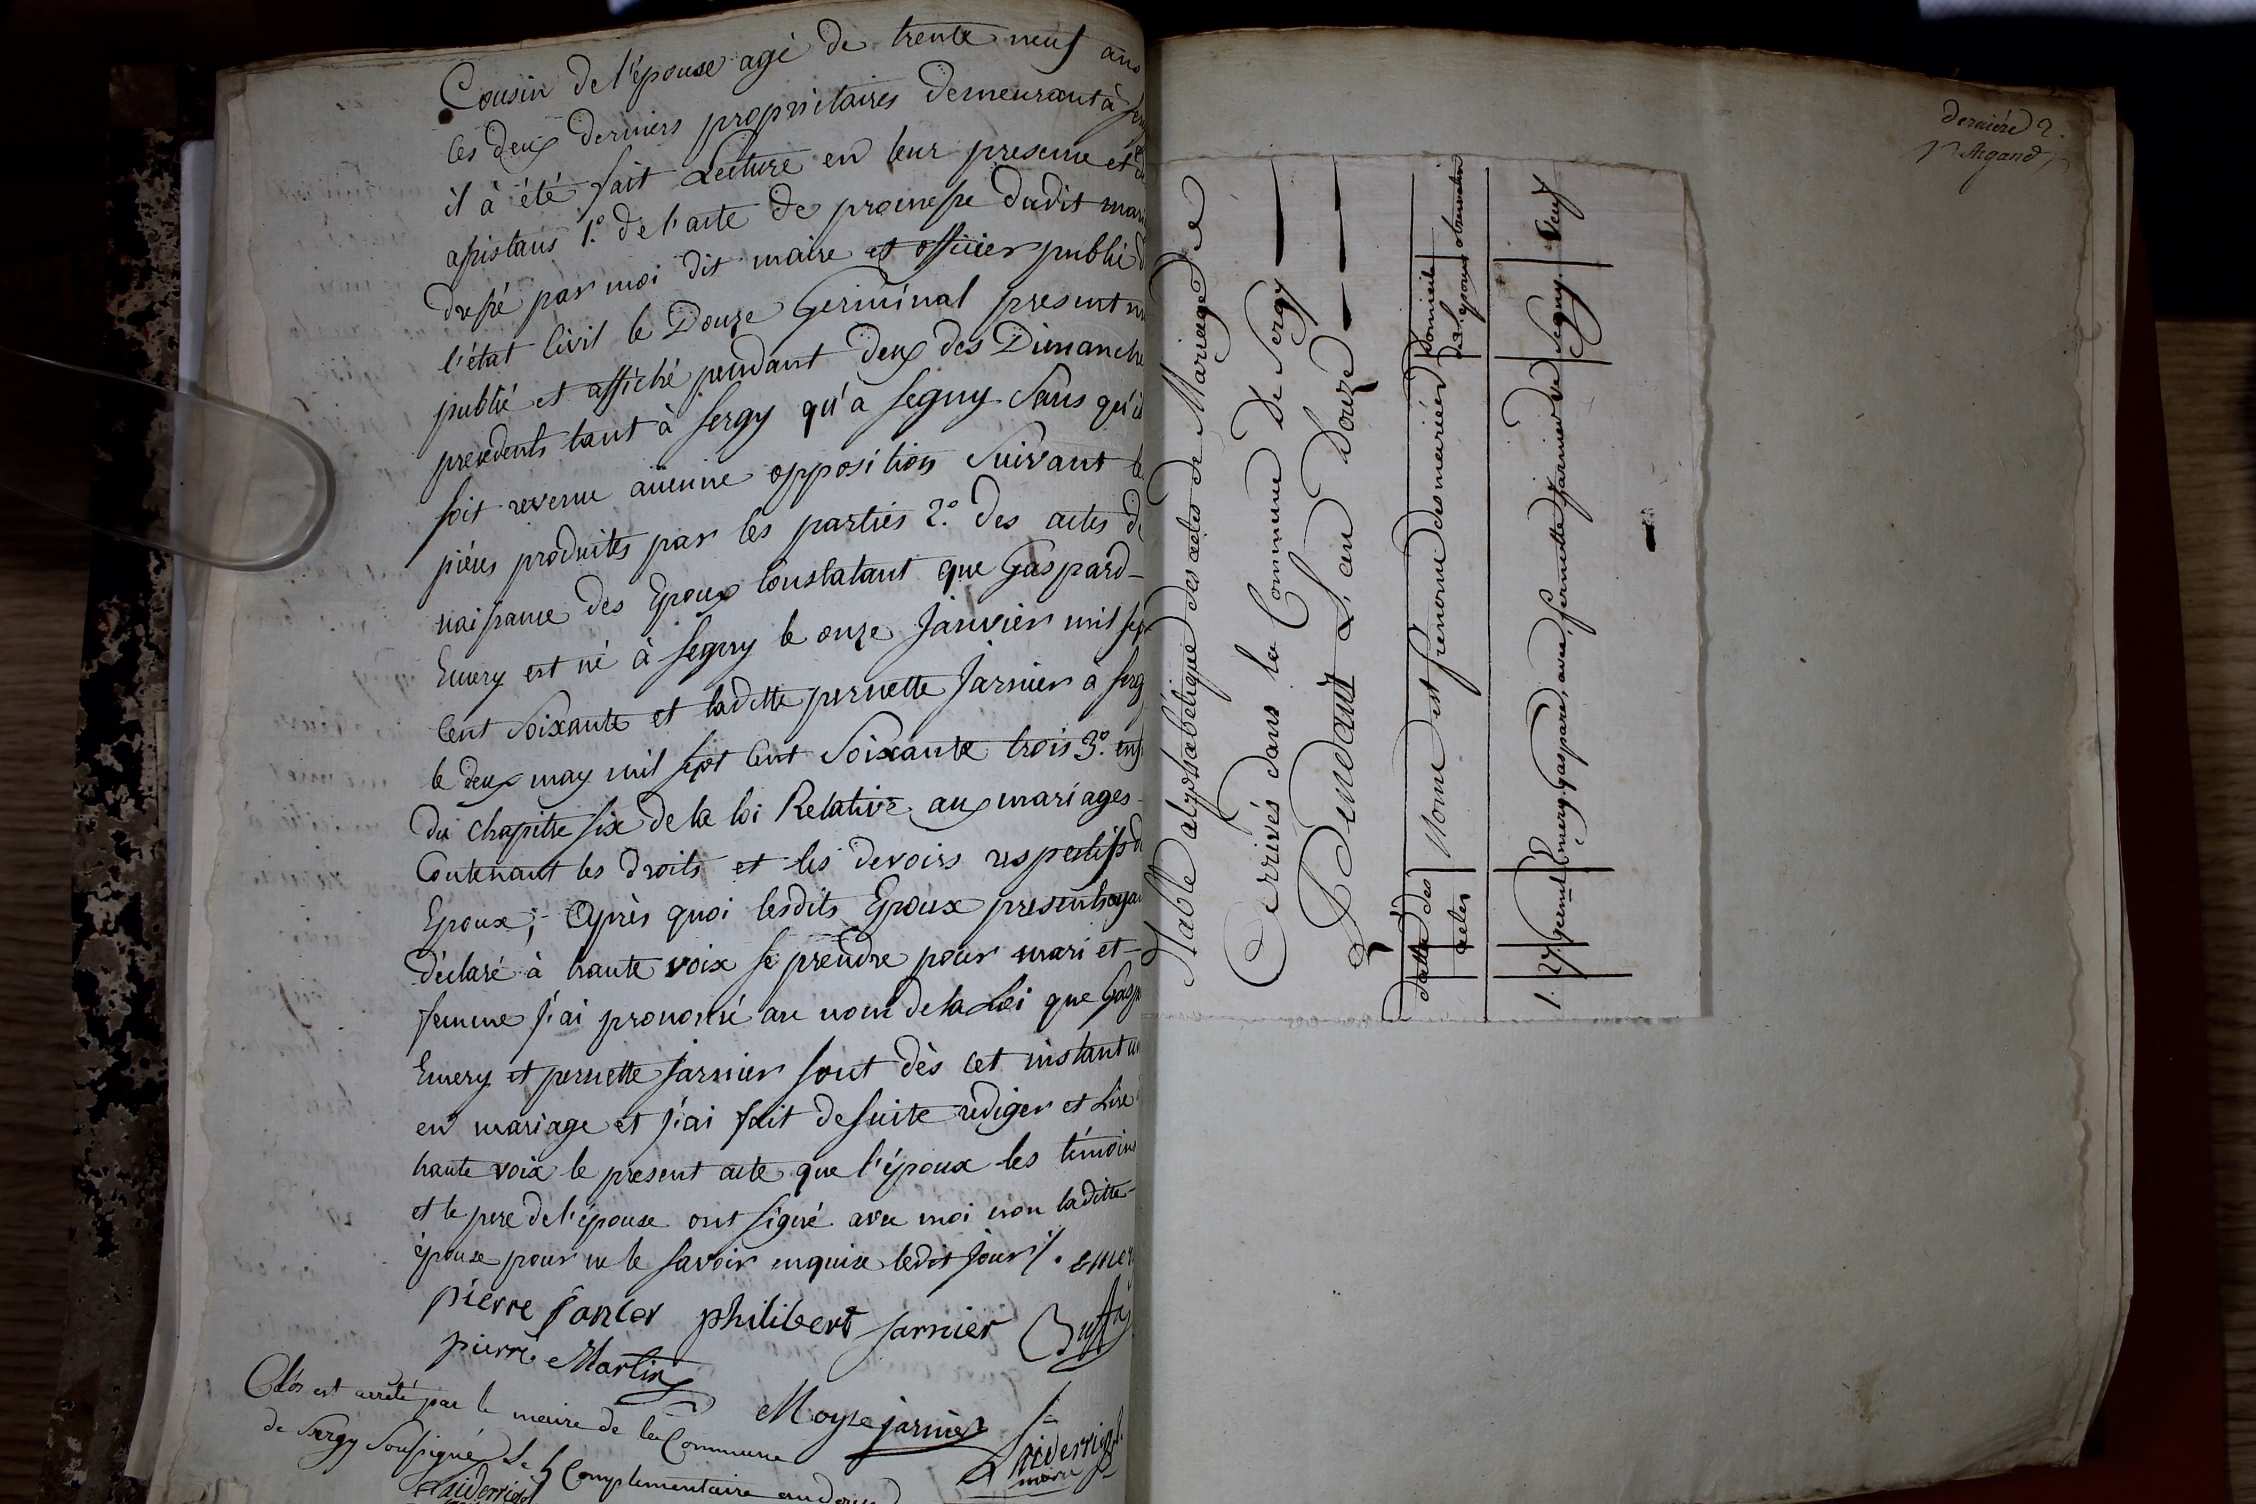 Cousin de l'épouse agé de trente neuf ans
les deux derniers propriétaires demeurant à
il à été fait Lecture en leur presence et
assistans 1.° de l'acte de promesse dudit
dressé par moi dit maire et officier public
l'état Civil le Douze Germinal present
publié et affiché pendant deux des Dimanche
precedents tant à Sergy qu'a Segny Sans qu'il
soit revenu aucune opposition Suivant
piéces produites par les parties 2.° des actes de
naissance des Epoux Constatant que Gaspard-
Emery est né à Segny le onze Janvier mil sept
Cent Soixante et laditte pernette Jarnier à
le deux may mil sept Cent Soixante trois 3.°
du chapitre six de la loi Relative aux mariages-
Contenant les droits et les devoirs respectifs
Epoux; - Après quoi lesdits Epoux presents
déclaré à haute voix se prendre pour mari et-
femme j'ai prononcé au nom de la Loi que
Emery et pernette Jarnier sont dès cet instant
en mariage et j'ai fait de suite rediger et Lire
haute voix le present acte que l'époux les témoins
et le pere de l'épouse ont signé avec moi non laditte-
épouse pour ne le savoir enquise ledit jour ./. emery
pierre philibert jarnier
pierre Martin
Moyse jarnier
maire
Clos est arrêté par le maire de la Commune
de Sergy Soussigné Le 5 Complementaire an
derniére 2.
Table alphabétique des actes de Mariage
arrivés dans la Commune de Sergy
Pendant L'an Douze
datte des actes | Noms est prenoms des mariées | Domicile de l'epoux | observation
1. 27 germl | Emery gaspard, avec pernette jarnier de | Segny | Veuf